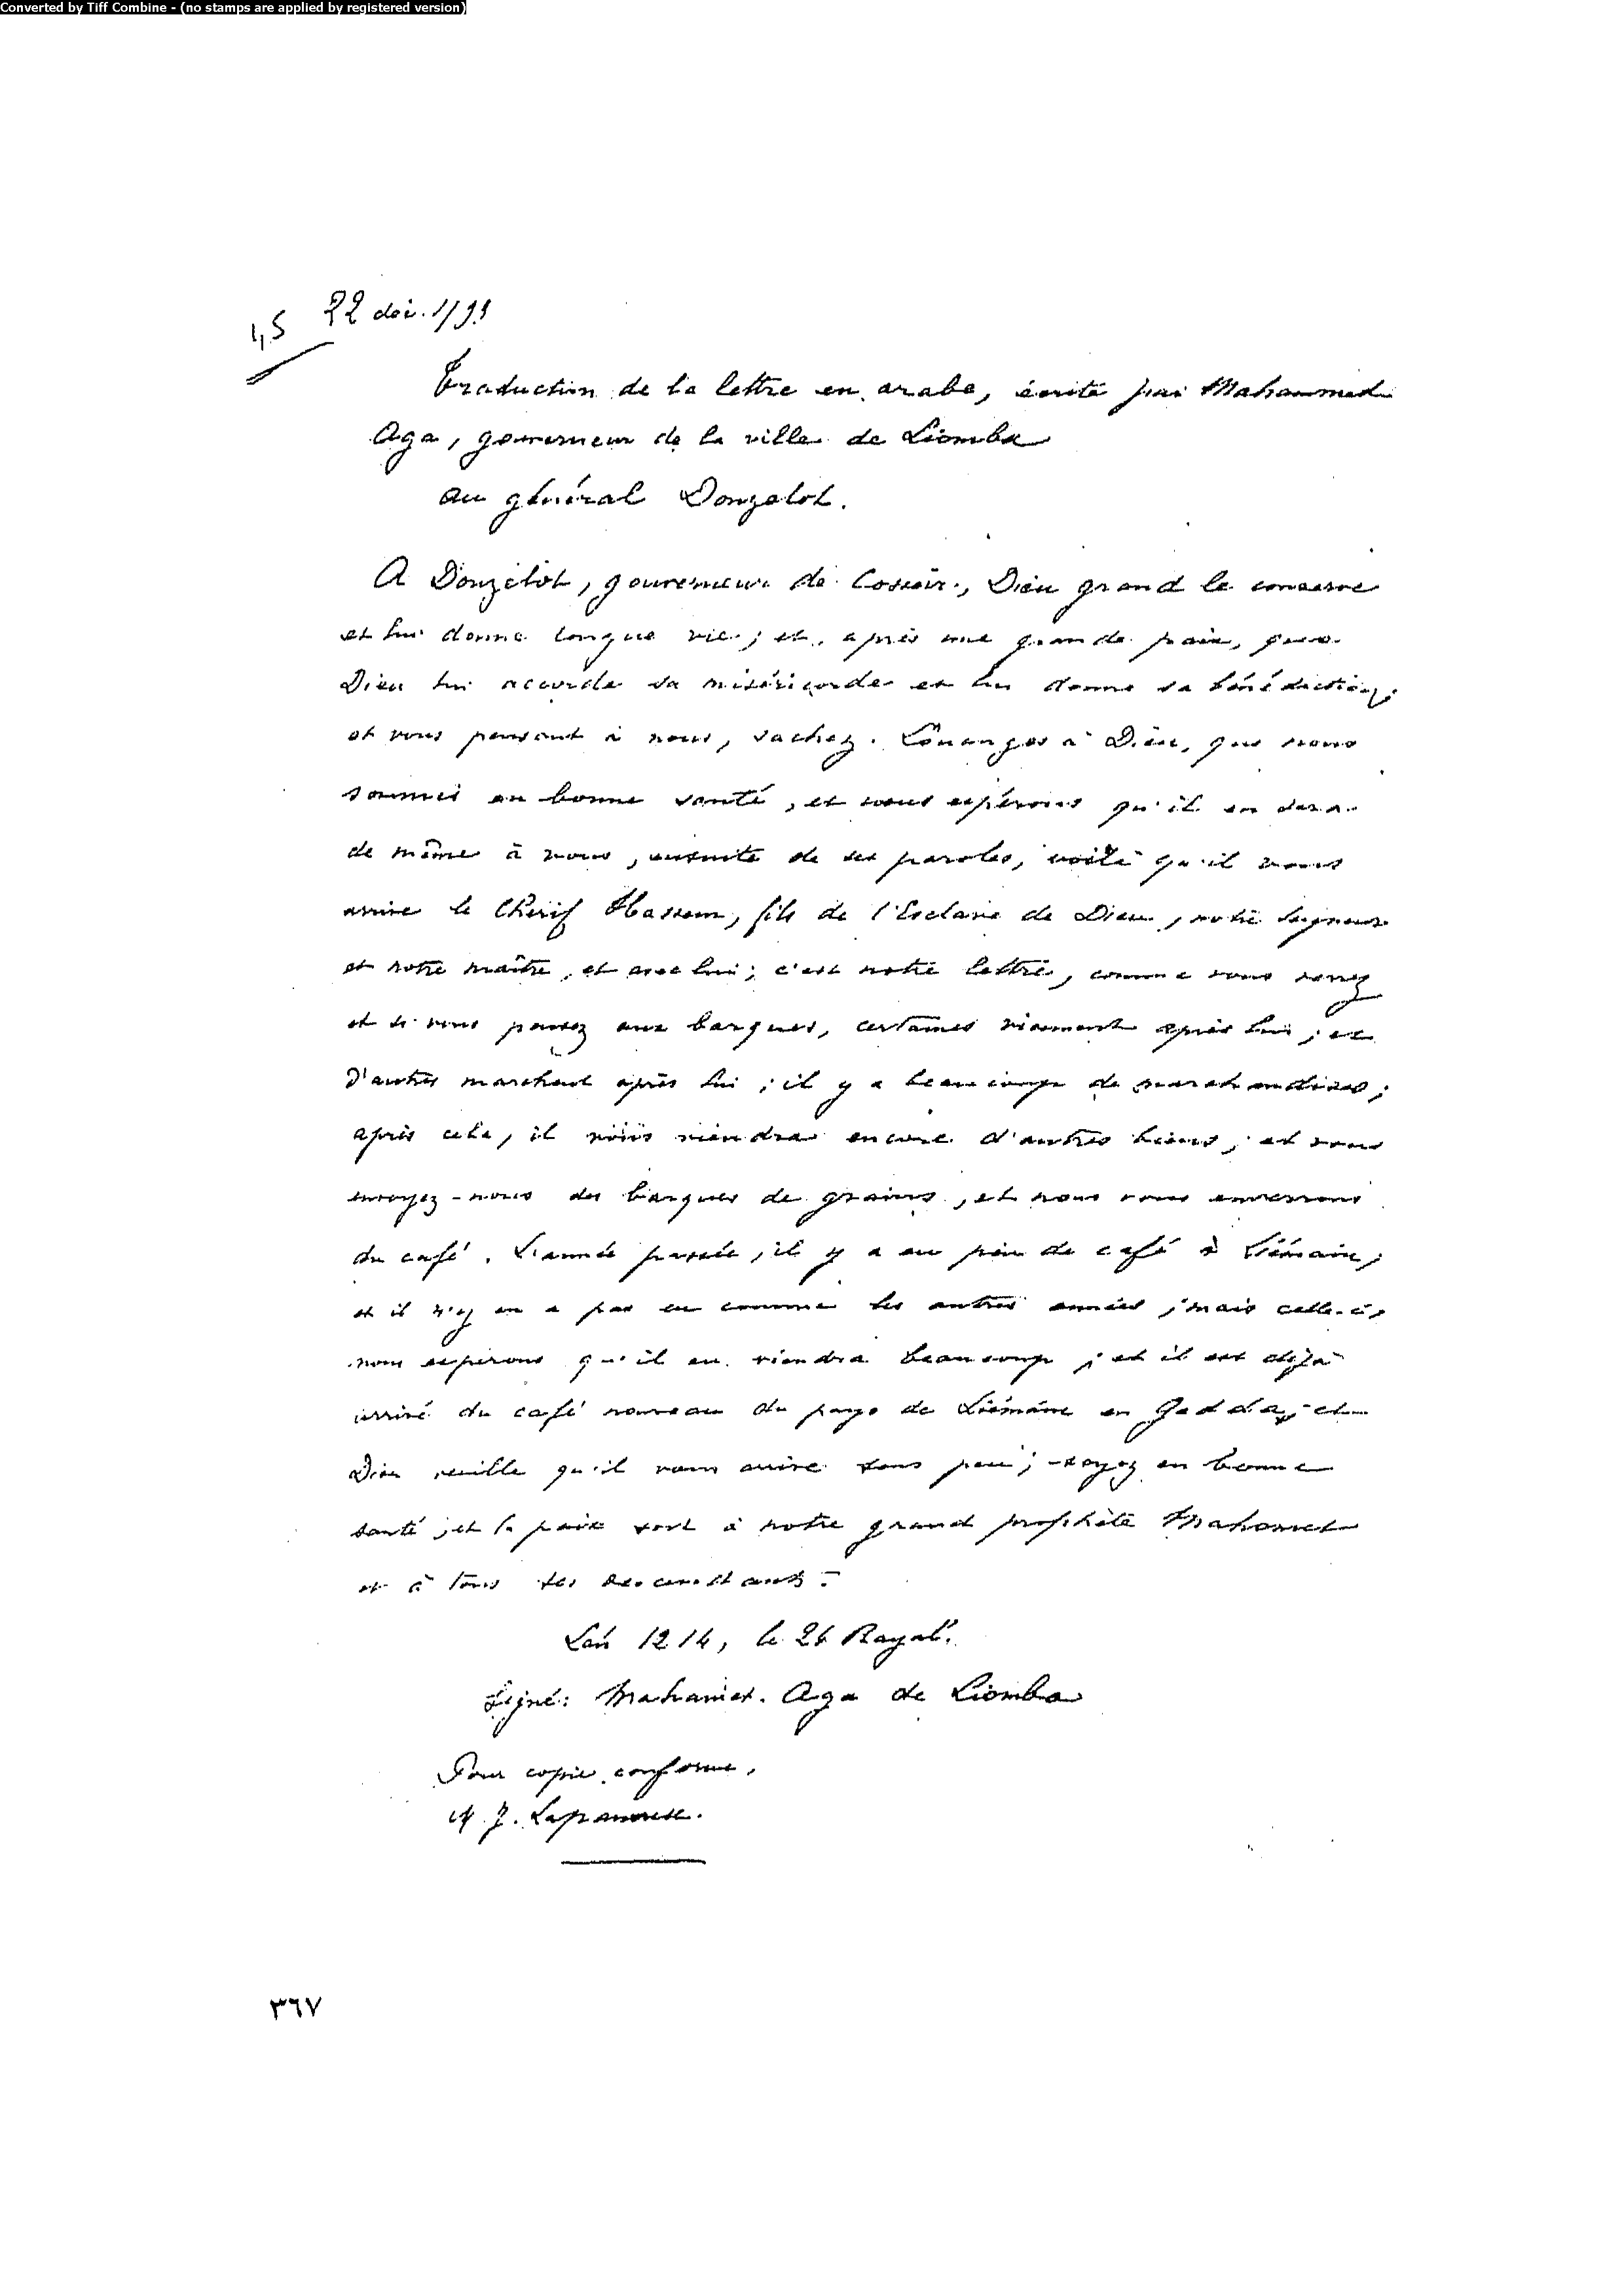 Converted by Tiff Combine - (no stamps are applied by registered version)
22 déc. 1799
Traduction de la lettre en arabe, écrite par Mahammed
Aga, gouverneur de la ville de Liomba
au général Donzelot.
A Donzelot, gouverneur de Cosseir, Dieu grand le conserve
et lui donne longue vie; et, après une grande paix, que
Dieu lui accorde sa miséricorde et lui donne sa bénédiction;
et vous pensant à nous, sachez. Louanges à Dieu, que nous
sommes en bonne santé, et nous espérons qu'il en sera
de même à vous, ensuite de ses paroles, voilà qu'il vous
arrive le Chérif Hassem, fils de l'Esclave de Dieu, notre seigneur
et notre maître, et avec lui; c'est notre lettre, comme vous verrez
et si vous pensez aux barques, certaines viennent après lui; et
d'autres marchent après lui; il y a beaucoup de marchandises;
après cela, il vous viendra encore d'autres biens; et vous
envoyez-nous des barques de grains, et nous vous enverrons
du café. L'année passée, il y a eu peu de café à Liémain,
et il n'y en a pas eu comme les autres années; mais celle-ci,
nous espérons qu'il en viendra beaucoup; et il est déjà
arrivé du café nouveau du pays de Liémâne en Gedda; et
Dieu veuille qu'il vous arrive sous peu; soyez en bonne
santé; et la paix soit à notre grand prophète Mahomet
et à tous ses descendants.
L'an 1214, le 24 Rayab.
Signé: Mahamet. Aga de Liomba
Pour copie conforme,
٣٦٧